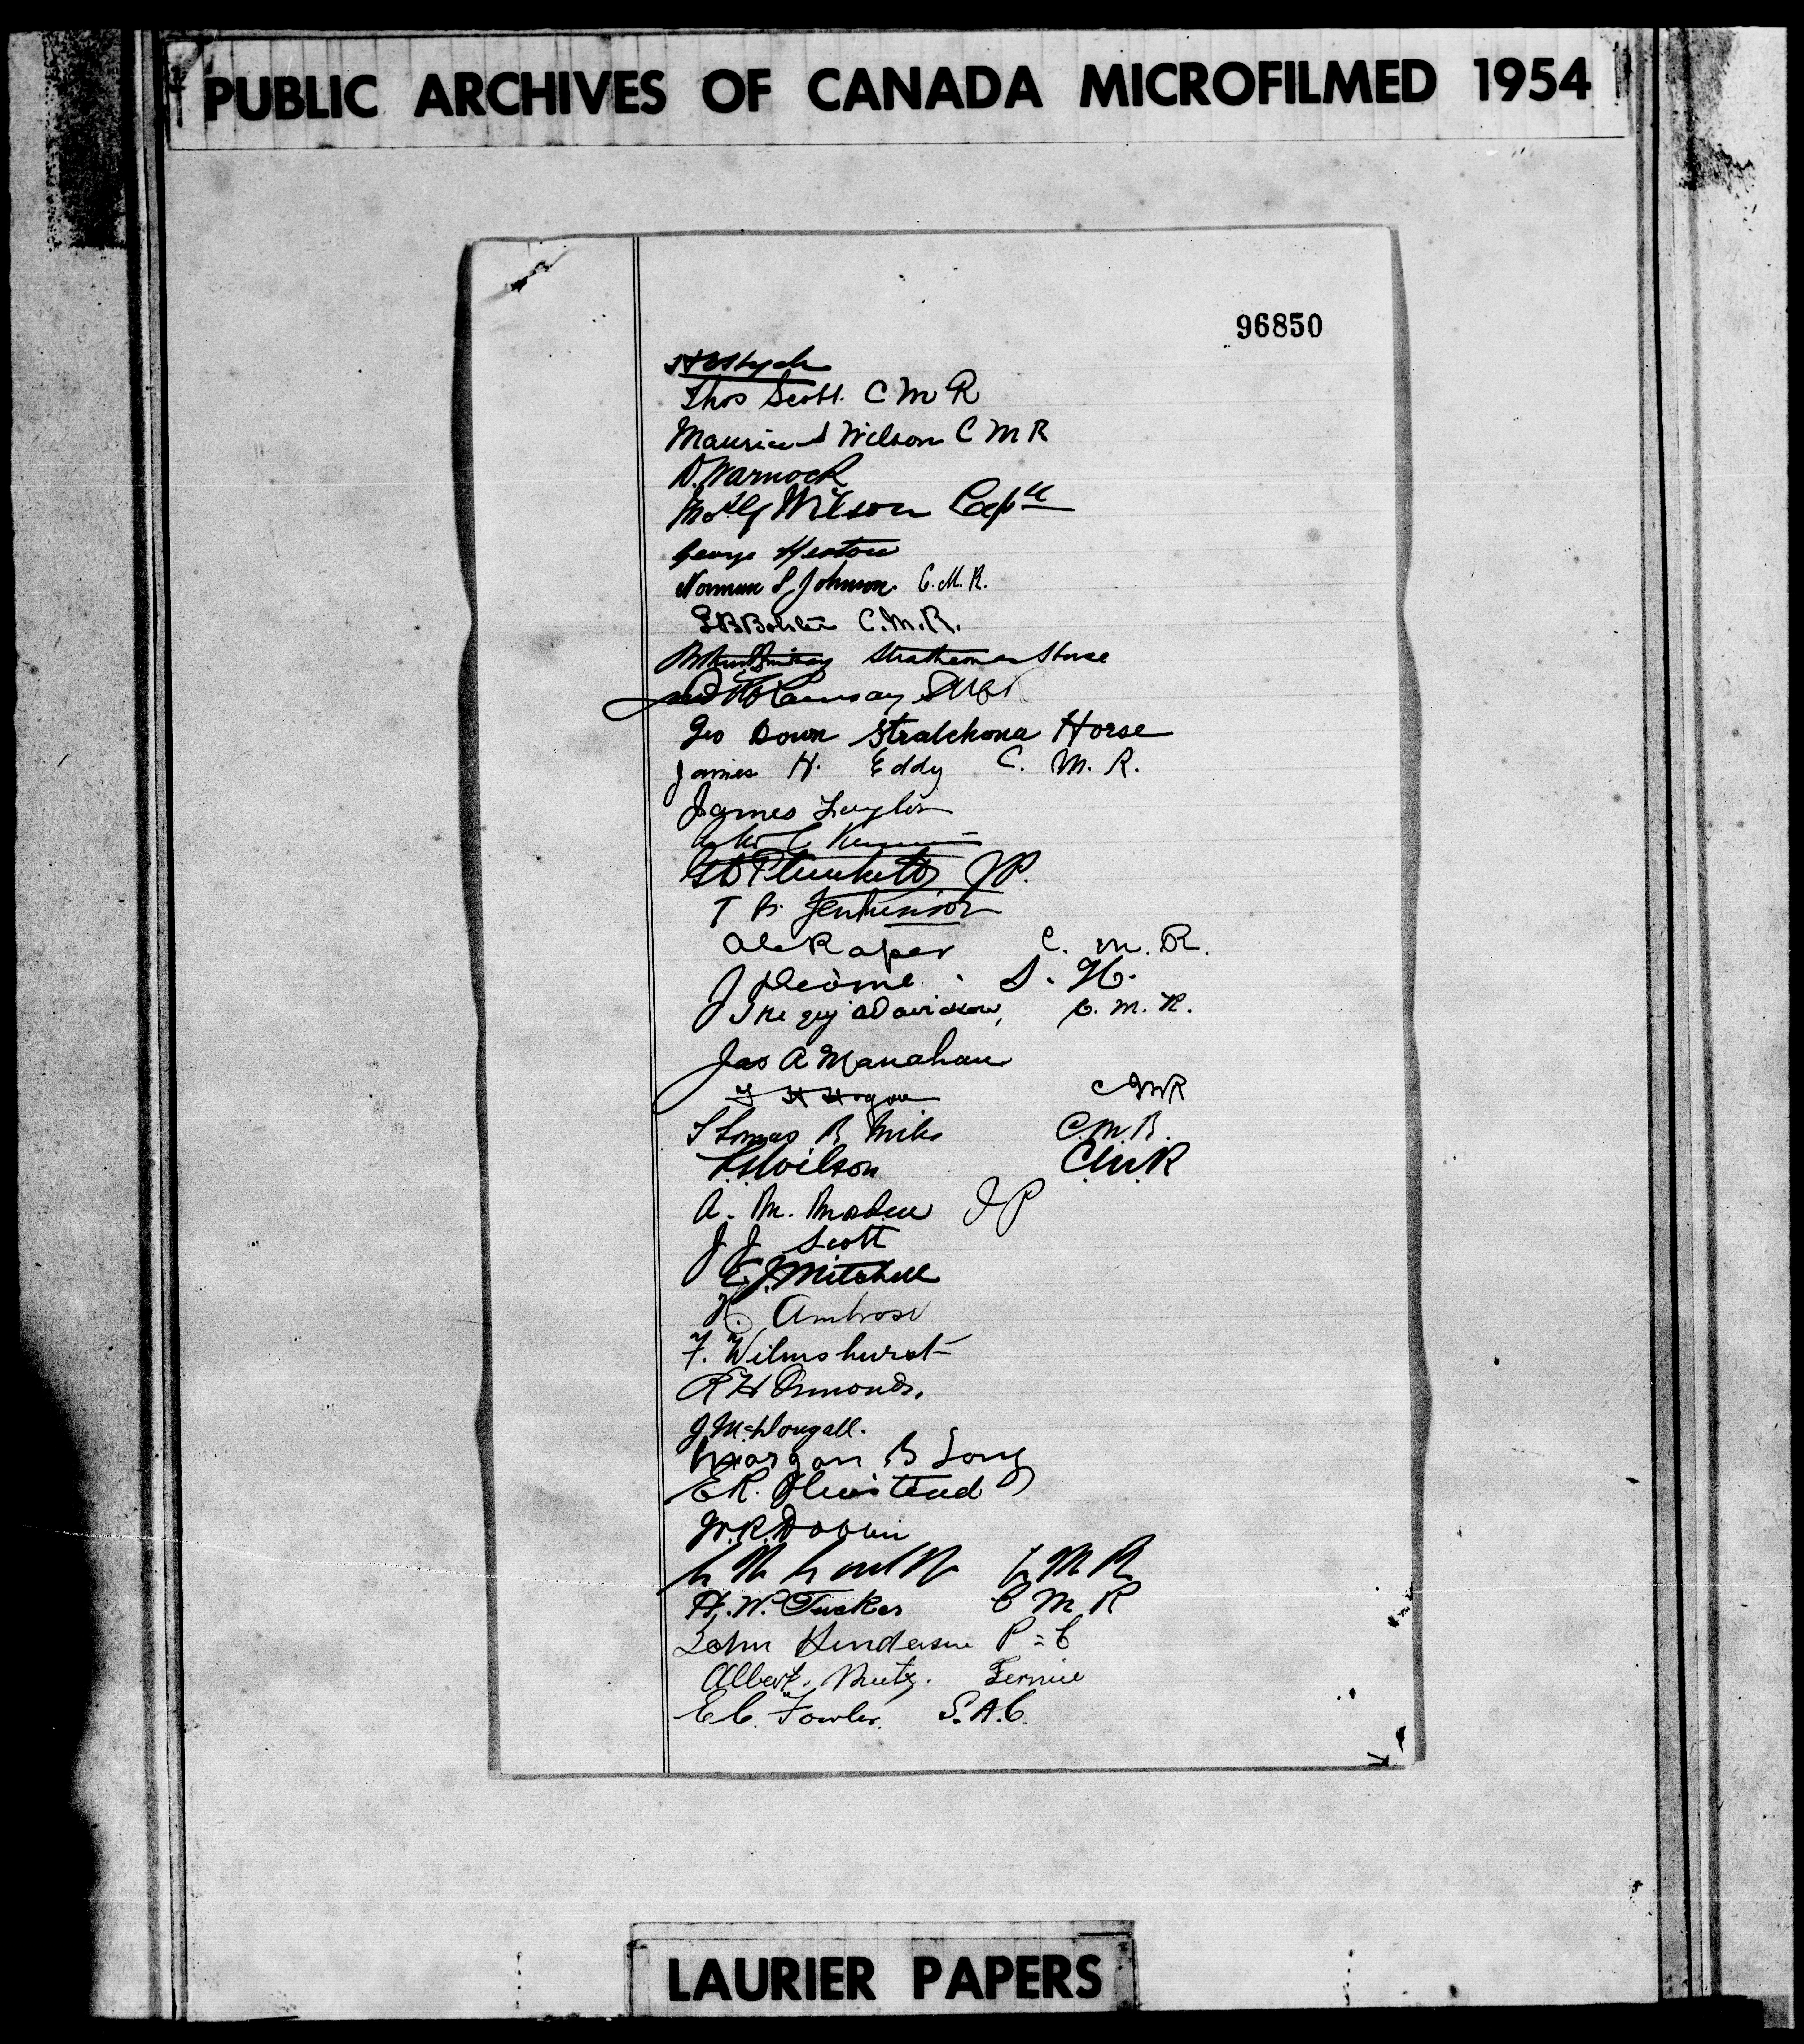 PUBLIC ARCHIVES OF CANADA MICROFILMED 1954
96850
Thos Scott. C M R
Maurice S Wilson C M R
D. Warnock
Wilson Captn
George Heaton
Norman S. Johnson. C.M.R.
C.M.R.
Strathcona Horse
Ramsay
Geo Down Stratchona Horse
James H. Eddy C. M. R.
James Taylor
Plunkett JP.
T B. Jenkinson
Raper C. M. R.
J S. H.
Davidson, C. M. R.
Jas A Manahan
F H Hogan CMR
Thomas B Miles C.M.R.
Wilson C.M.R
A. M. JP
J J Scott
E. J. Mitchell
H. Ambrose
F. Wilmshurst
R H Osmond.
J. McDougall.
Morgan B Long
E R. Olmstead
W. R. Dobbin
C M R
H. W. Tucker C M R
John Henderson P = C
Albert Mutz. Fernie
E C. Fowler. S.A.C.
LAURIER PAPERS